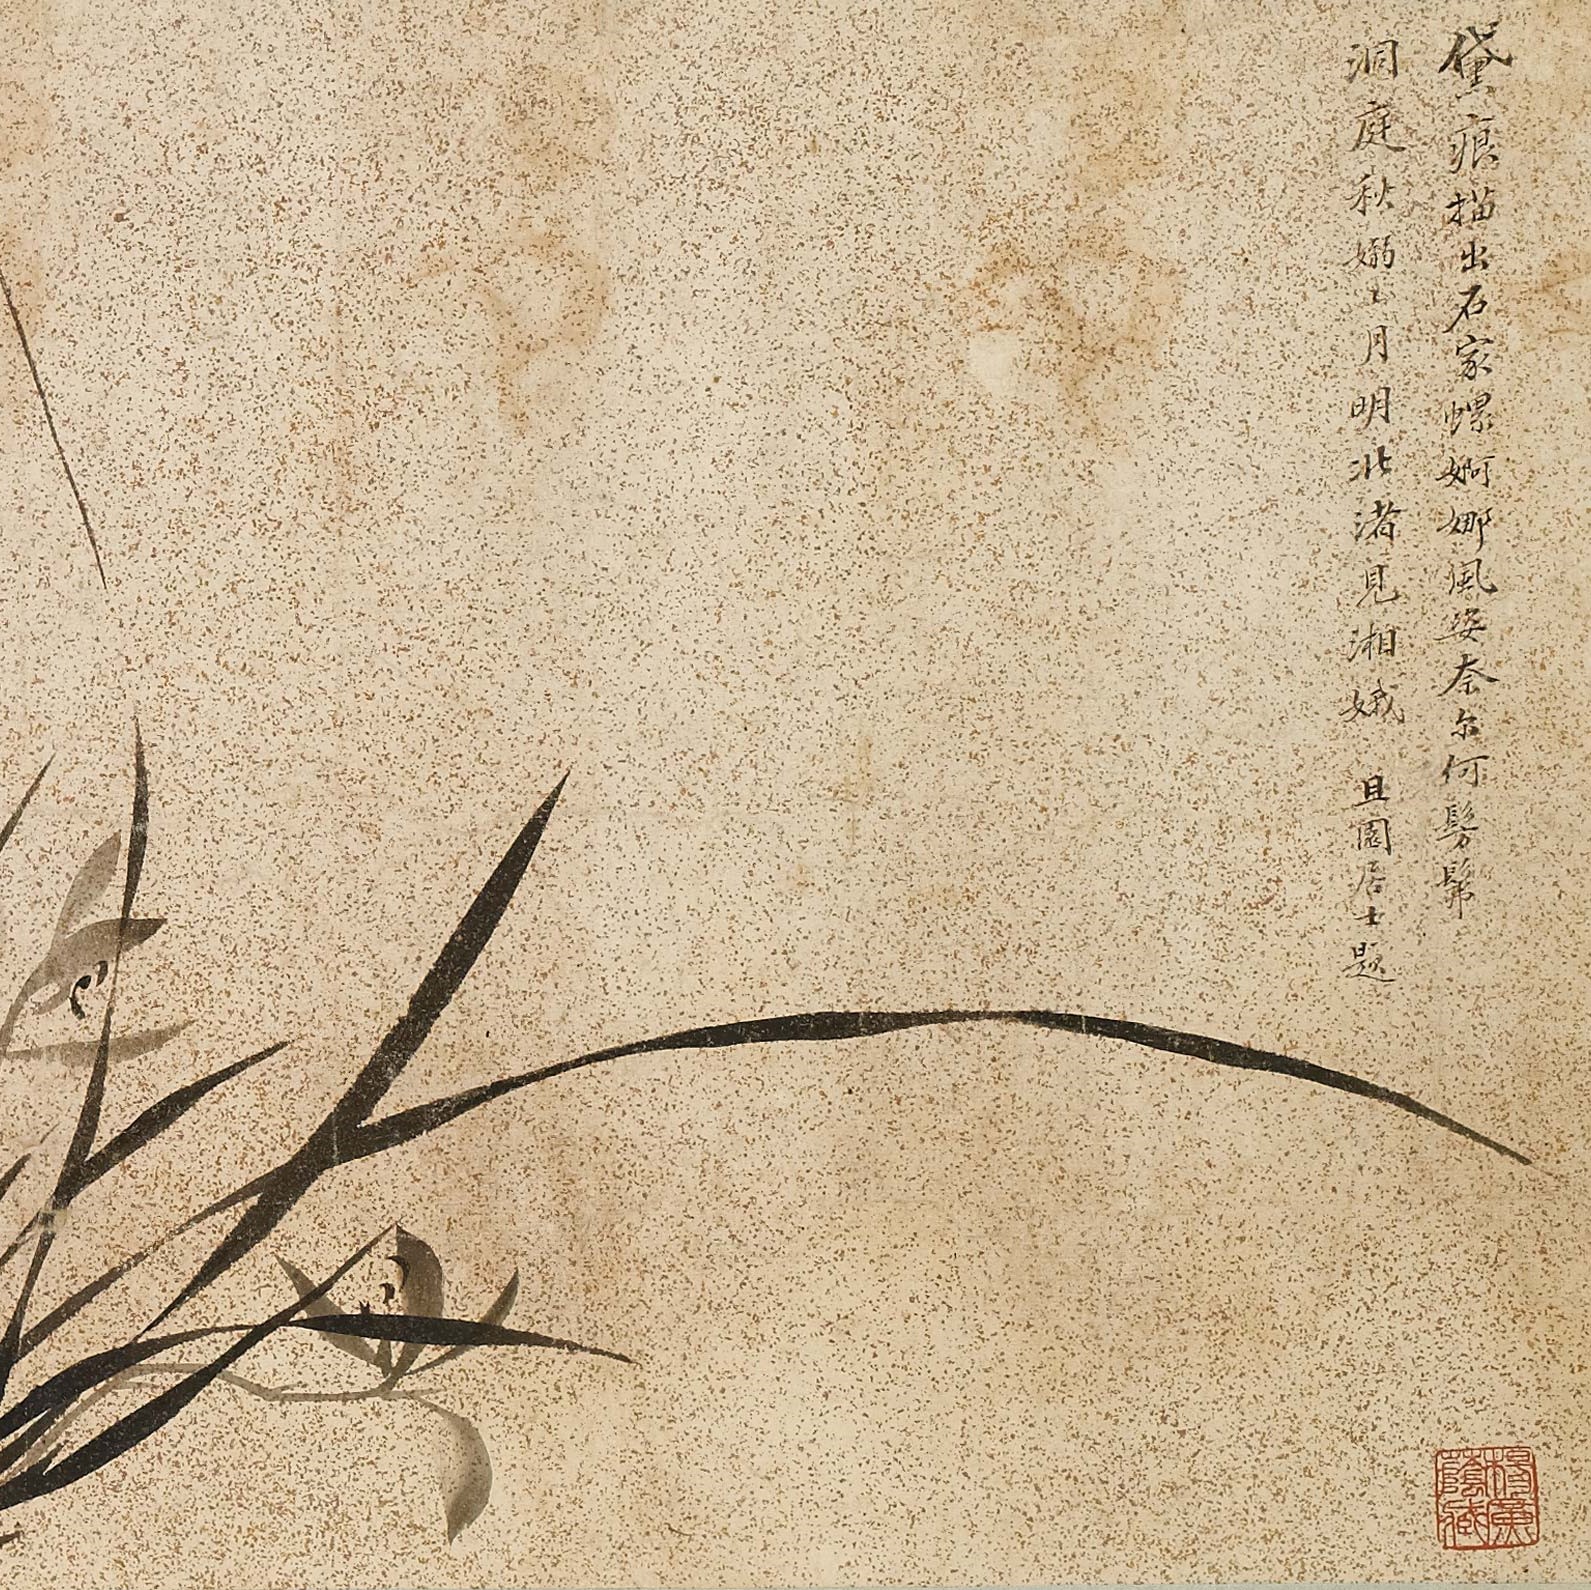 黛痕描出石家螺婀娜風姿奈尔何髣髴
洞庭秋嫋〻月明北渚見湘娥 且園居士題
楊蔭